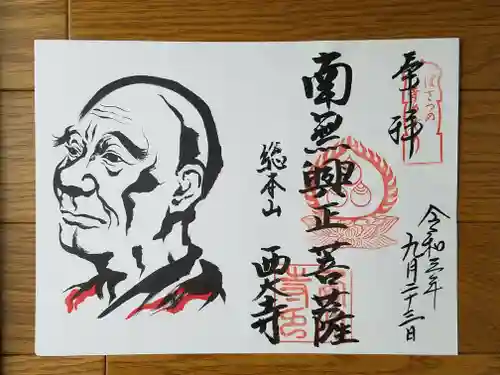 奉拝
ぼさつの寺
令和三年
九月二十三日
南無興正菩薩
総本山
西大寺